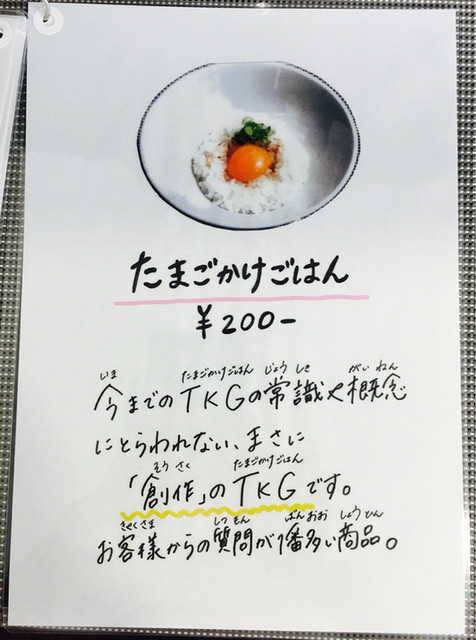 たまごかけごはん
¥200-
いま たまごかけごはん じょう しき がい ねん
今までのTKGの常識や概念
にとらわれない、まさに
そう さく たまごかけごはん
「創作」のTKGです。
きゃくさま しつ もん ばん おお しょう ひん
お客様からの質問が1番多い商品。